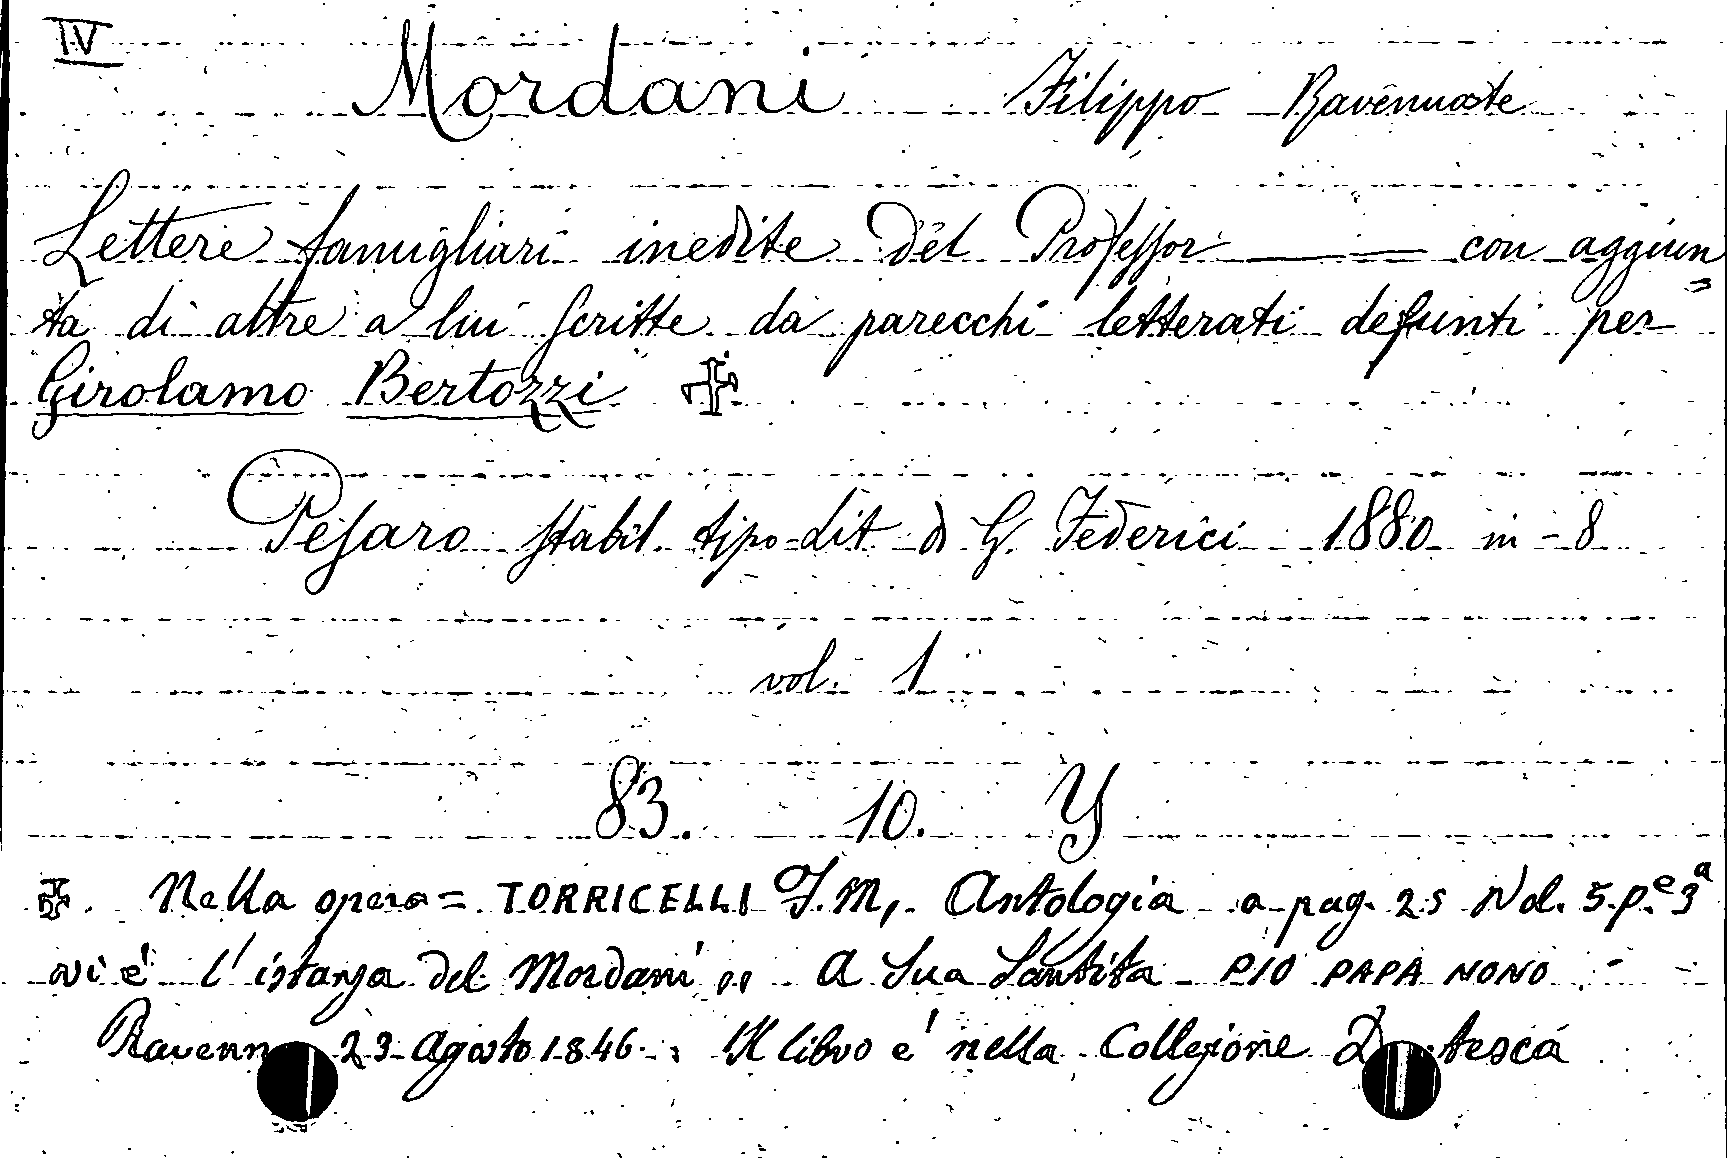 IV
Mordani Filippo Ravennate
Lettere famigliari inedite del Professor —— con aggiun=
ta di altre a lui scritte da parecchi letterati defunti per
Girolamo Bertozzi ✠
Pesaro stabil. tipo-Lit di G. Federici 1880 in-8
vol. 1
83. 10. Y
✠. Nella opera= TORRICELLI F.M,. Antologia a pag. 25 Vol. 5. p.e 3a
vi è l'istanza del Mordani ,, A Sua Santita PIO PAPA NONO -
23 Agosto 1846. Il libro e' nella Collezione